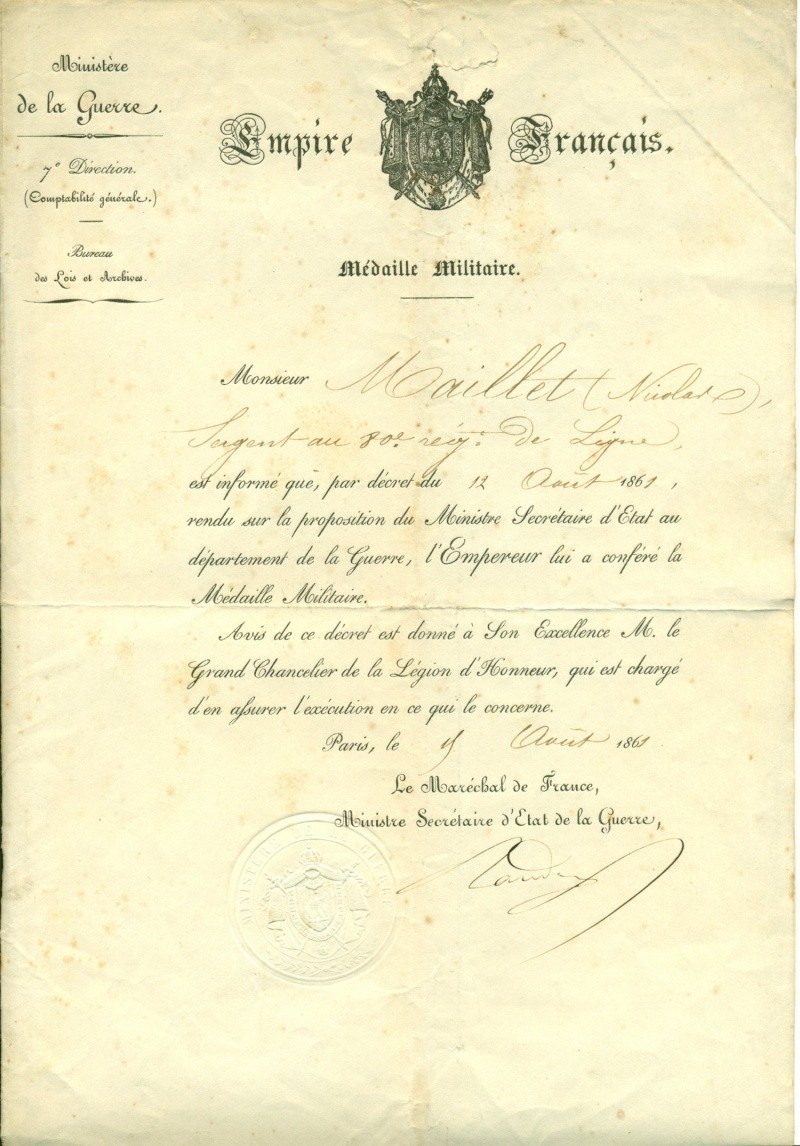 Ministère
de la Guerre.
7e Direction.
(Comptabilité générale.)
Bureau
des Lois et Archives.
Empire Français.
Médaille Militaire.
Monsieur Maillet (Nicolas),
Sergent au 80e rég.t de Ligne,
est informé que, par décret du 12 Août 1861,
rendu sur la proposition du Ministre Secrétaire d'Etat au
département de la Guerre, l'Empereur lui a conféré la
Médaille Militaire.
Avis de ce décret est donné à Son Excellence M. le
Grand Chancelier de la Légion d'Honneur, qui est chargé
d'en assurer l'exécution en ce qui le concerne.
Paris, le Août 1861
Le Maréchal de France,
Ministre Secrétaire d'Etat de la Guerre,
MINISTÈRE DE LA GUERRE